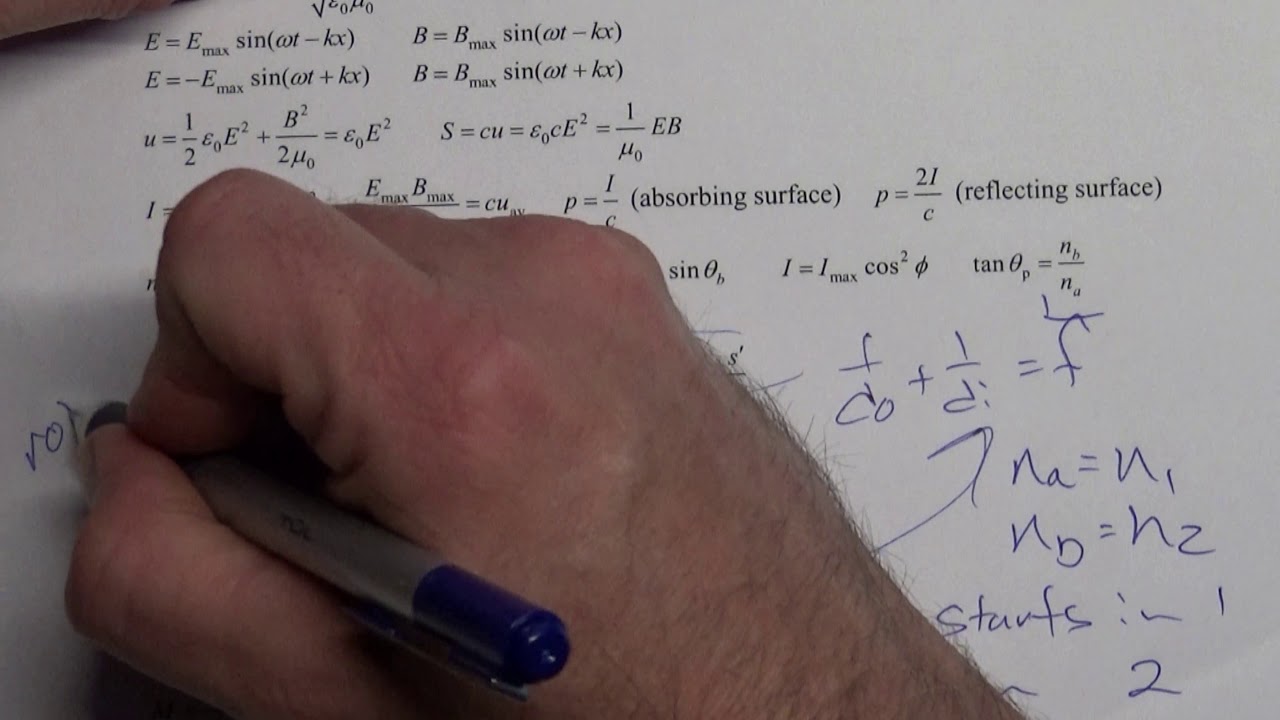 √ε₀μ₀
E = E_max sin(ωt − kx) B = B_max sin(ωt − kx)
E = −E_max sin(ωt + kx) B = B_max sin(ωt + kx)
u = 1/2 ε₀E² + B²/2μ₀ = ε₀E² S = cu = ε₀cE² = 1/μ₀ EB
I = E_max B_max = cu_av p = I/c (absorbing surface) p = 2I/c (reflecting surface)
sin θ_b I = I_max cos² φ tan θ_p = n_b/n_a
s′
f/do + 1/di = 1/f
na = n1
nb = n2
starts in 1
2